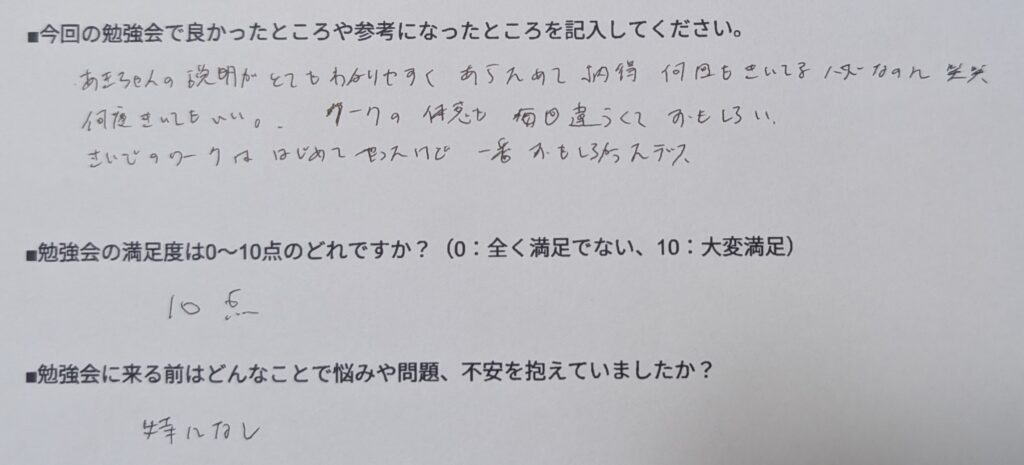 ■今回の勉強会で良かったところや参考になったところを記入してください。
あきちゃんの説明がとてもわかりやすく あらためて納得 何回もきいてる ハズなのに 笑笑
何度きいてもいい。 ワークの 体感も 毎回違うくて おもしろい。
さいごのワークは はじめて やったけど 一番 おもしろかったデス
■勉強会の満足度は0～10点のどれですか？（0：全く満足でない、10：大変満足）
10 点
■勉強会に来る前はどんなことで悩みや問題、不安を抱えていましたか？
特になし